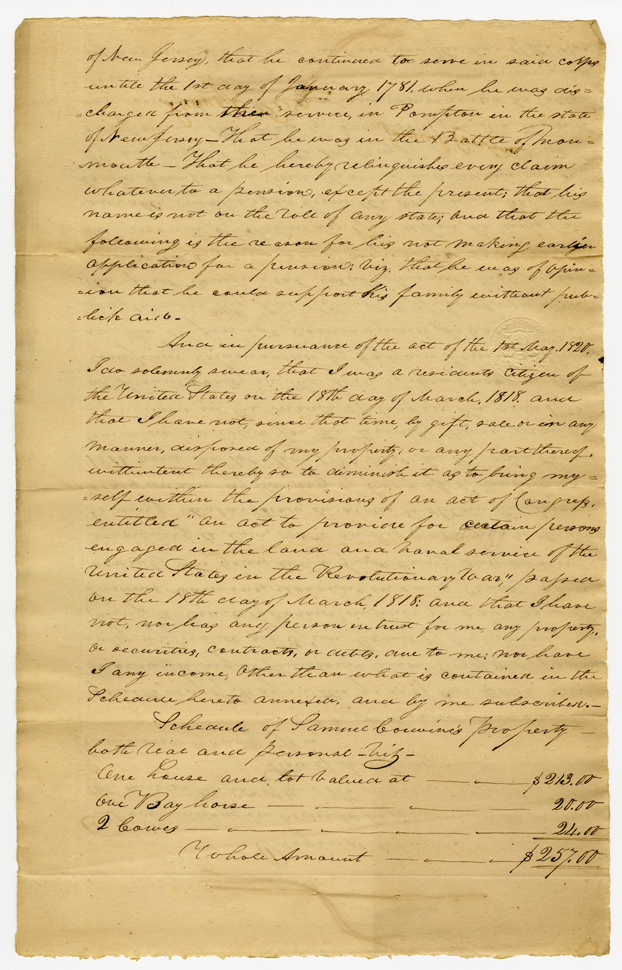 of New Jersey, that he continued to serve in said corps
untill the 1st day of January 1781, when he was dis=
=charged from the service, in Pompton in the state
of New Jersey — That he was in the Battle of Mon=
=mouth — That he hereby relinquishes every claim
whatever to a pension, except the present; that his
name is not on the role of any state; and that the
following is the reason for his not making earlier
application for a pension; viz, that he was of opin=
=ion that he could support his family without pub=
=lick aid.—
And in pursuance of the act of the 1st May, 1820,
I do solemnly swear, that I was a residents citizen of
the United States on the 18th day of March, 1818. and
that I have not, since that time, by gift, sale or in any
manner, disposed of my property, or any part thereof,
with intent thereby so to diminish it as to bring my=
=self within the provisions of an act of Congress,
entitled "an act to provide for certain persons
engaged in the land and naval service of the
United States in the Revolutionary War," passed
on the 18th day of March, 1818: and that I have
not, nor has any person in trust for me, any property,
or securities, contracts, or debts, due to me; nor have
I any income, other than what is contained in the
Schedule hereto annexed, and by me subscribed.—
Schedule of Samuel Property —
both real and personal — Viz —
One house and lot valued at — " — $213.00
One Bay horse — " — " — 20.00
2 Cows — " — " — " — 24.00
Whole Amount — " — $257.00